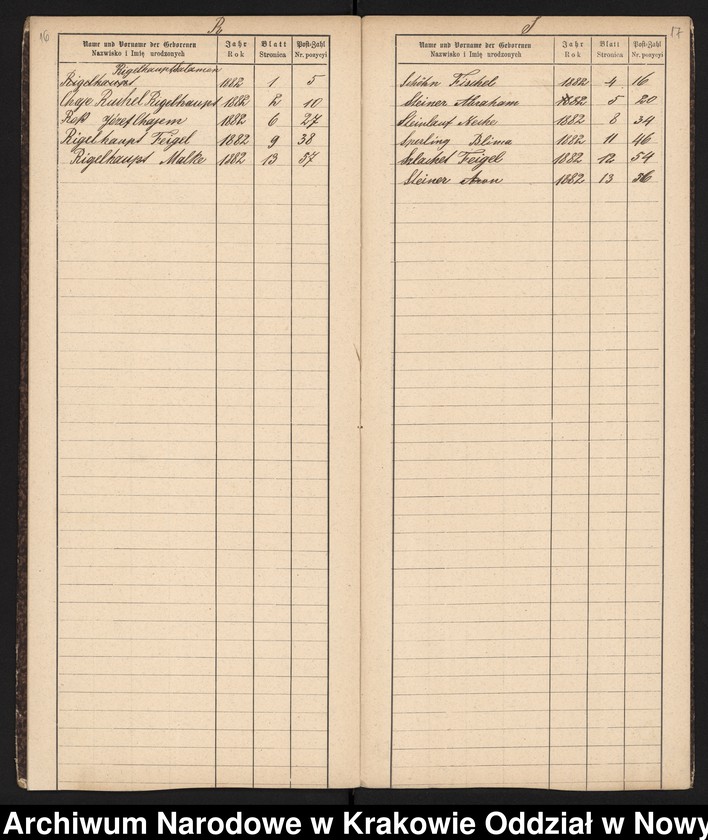 16
R
Name und Vorname der Geborenen Jahr Blatt Post-Zahl
Nazwisko i Imię urodzonych Rok Stronica Nr. pozycyi
Rigelhaupt Salamon
Rigelhaupt 1882 1 5
Chaje Ruchel Rigelhaupt 1882 2 10
Roß Józef Chajem 1882 6 27
Rigelhaupt Feigel 1882 9 38
Rigelhaupt Malke 1882 13 57
17
S
Name und Vorname der Geborenen Jahr Blatt Post-Zahl
Nazwisko i Imię urodzonych Rok Stronica Nr. pozycyi
Schöhn Fischel 1882 4 16
Steiner Abraham 1882 5 20
Steinlauf Neche 1882 8 34
Sperling Blima 1882 11 46
Szlachet Feigel 1882 12 54
Steiner Aron 1882 13 56
Archiwum Narodowe w Krakowie Oddział w Nowy